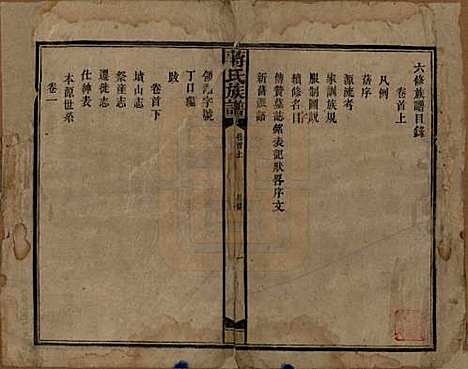 六修族譜目錄
卷首上
凡例
舊序
源流考
家訓族規
服制圖
續修名目
傳贊墓誌銘表記狀畧序文
新舊派語
蔣氏族譜
卷首上
目錄
領譜字號
丁口編
跋
卷首下
墳山志
祭產志
遷徙志
仕紳表
本源世系
卷一